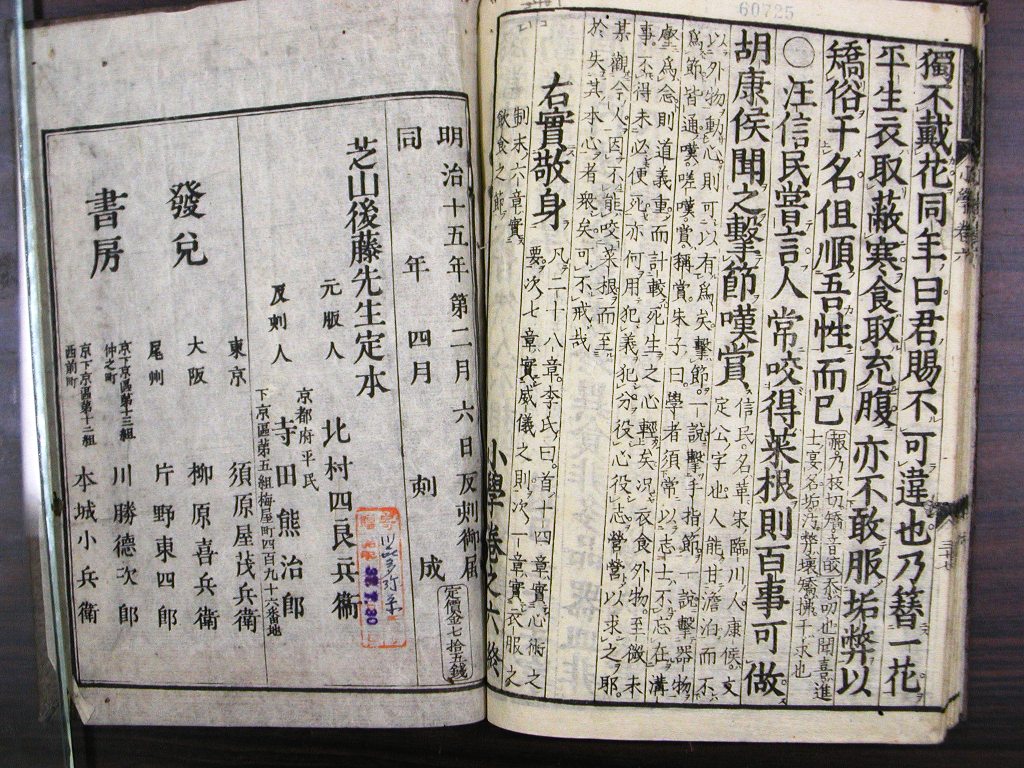 60725
獨不戴花同年曰君賜不可違也乃簪一花
平生衣取蔽寒食取充腹亦不敢服垢弊以
矯俗干名但順吾性而已
○汪信民嘗言人常咬得菜根則百事可做
胡康侯聞之擊節嘆賞
信民名革宋臨川人康候文
定公字也人能甘澹泊而不
以外物動心則可以有爲矣擊節一說擊手指節一說擊器物
爲節皆通嘆嗟嘆賞稱賞朱子曰學者須常以志士不忘在溝
壑爲念則道義重而計較死生之心輕矣況衣食外物至微末
事不得未必便死亦何用犯義犯分役心役志營營以求之耶
某觀今人因不能咬菜根而至
於失其本心者衆矣可不戒哉
右實敬身
凡二十八章李氏曰首十四章實心術之
要次七章實威儀之則次一章實衣服之
制末六章實
飲食之節
小學卷之六終
明治十五年第二月六日反刻御届
同年四月刻成
定價金七拾五錢
芝山後藤先生定本
元版人
北村四良兵衞
反刻人
京都府平民
寺田熊治郎
下京區第五組梅屋町四百九十六番地
發兌
書房
東京
須原屋茂兵衛
大阪
柳原喜兵衛
尾州
片野東四郎
京下京區第十三組
仲之町
川勝德次郎
京下京區第十二組
西前町
本城小兵衛